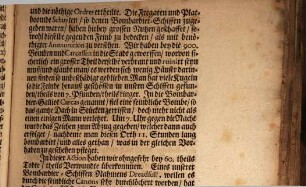 und die nöthige Ordres ertheilte. Die Fregatten und Plat-
boomte Schuyten / so denen Bombardier-Schiffen zugege-
ben waren / haben hiebey grossen Nutzen geschaffet /
so wohl dieselbe gegenden Feind zu bedecken / als mit be-
nöthigter Ammunition zu versehen. Wir haben bey die 900.
Bomben und Carcassen in die Stadt geworffen / wovon sicher-
lich ein grosser Theil derselbe verbrant und ruinirt seyn
muß / und glaubt man es werden sich wenig Häuser darin-
nen finden / so unbeschädigt geblieben. Man hat viele Kugeln
so die Feinde herauß geschossen in unsern Schiffen gefun-
den / meist von 7. Pfunden / dieses kürzer. In die Bombar-
dier-Galliot Carcass genamt / fiel eine feindliche Bombe / so
das gantze Dach in Stücken / doch mehr nicht als
einen eintzigen Mann verlohr. Um 7. Uhr gegen die Nacht
wurde das Zeichen zum Abzug gegeben / welcher dann auch
erfolget / nachdeme man dem Orth 11. Stunden lang
bombardirt / und alles gethan / was in der gleichen Vor-
haben zu geschehen pfleget.
In dieser Action haben wir ohngefehr bey 60. theils
Todte / theils Verwundte überkommen. Eines unserer
Bombardier-Schiffen Nahmens Dreadfull / weilen es
durch die feindliche Canons sehr durchlöchert worden / hat